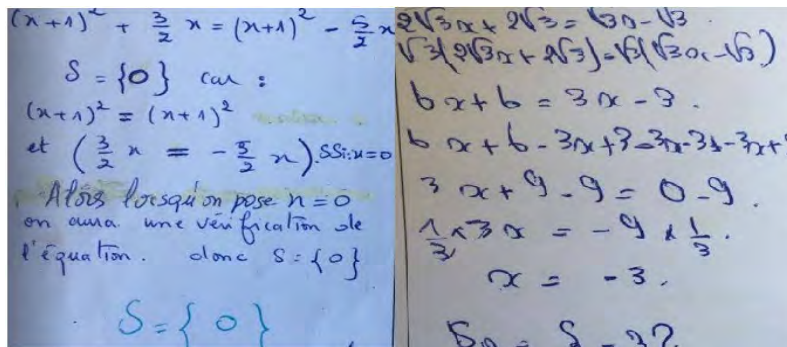 (x+1)² + 3/2 x = (x+1)² - 5/2 x
S = {0} car :
(x+1)² = (x+1)²
et (3/2 x = -5/2 x) . SSi x=0
Alors lorsqu'on pose x=0
on aura une vérification de
l'équation. donc S={0}
S={0}
2√3x + 2√3 = √3x - √3.
√3(2√3x + 2√3) = √3(√3x - √3)
6x + 6 = 3x - 3.
6x + 6 - 3x + 3 = 3x - 3 - 3x +
3x + 9 - 9 = 0 - 9.
1/3 × 3x = -9 × 1/3.
x = -3.